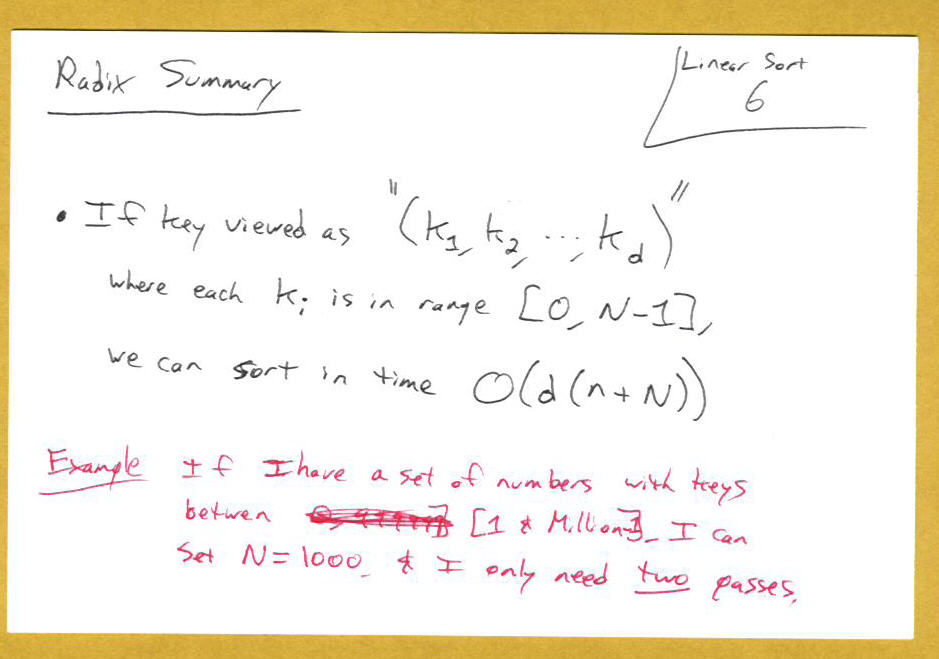 Radix Summary
Linear Sort
6
• If key viewed as "(k1, k2, ..., kd)"
where each ki is in range [0, N-1],
we can sort in time O(d(n+N))
Example If I have a set of numbers with keys
betwen [1 & Million]. I can
Set N=1000, & I only need two passes.